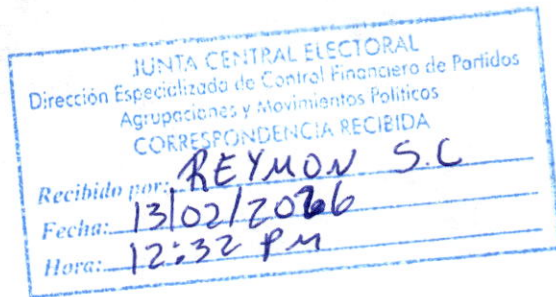 JUNTA CENTRAL ELECTORAL
Dirección Especializada de Control Financiero de Partidos
Agrupaciones y Movimientos Políticos
CORRESPONDENCIA RECIBIDA
Recibido por: REYMON S.C
Fecha: 13/02/2026
Hora: 12:32 PM